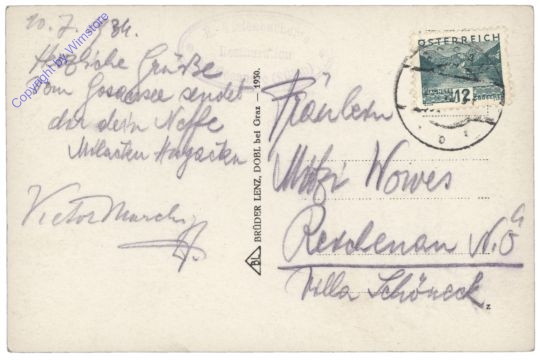 10. 7. 1934.
Herzliche Grüße
vom Gosausee sendet
dir dein Neffe
Victor March
Copyright by Wimstore
BRÜDER LENZ, DOBL bei Graz — 1930.
BL
ÖSTERREICH
12
Fräulein
Mitzi Wowes
Reichenau N.Ö
Villa Schöneck
z